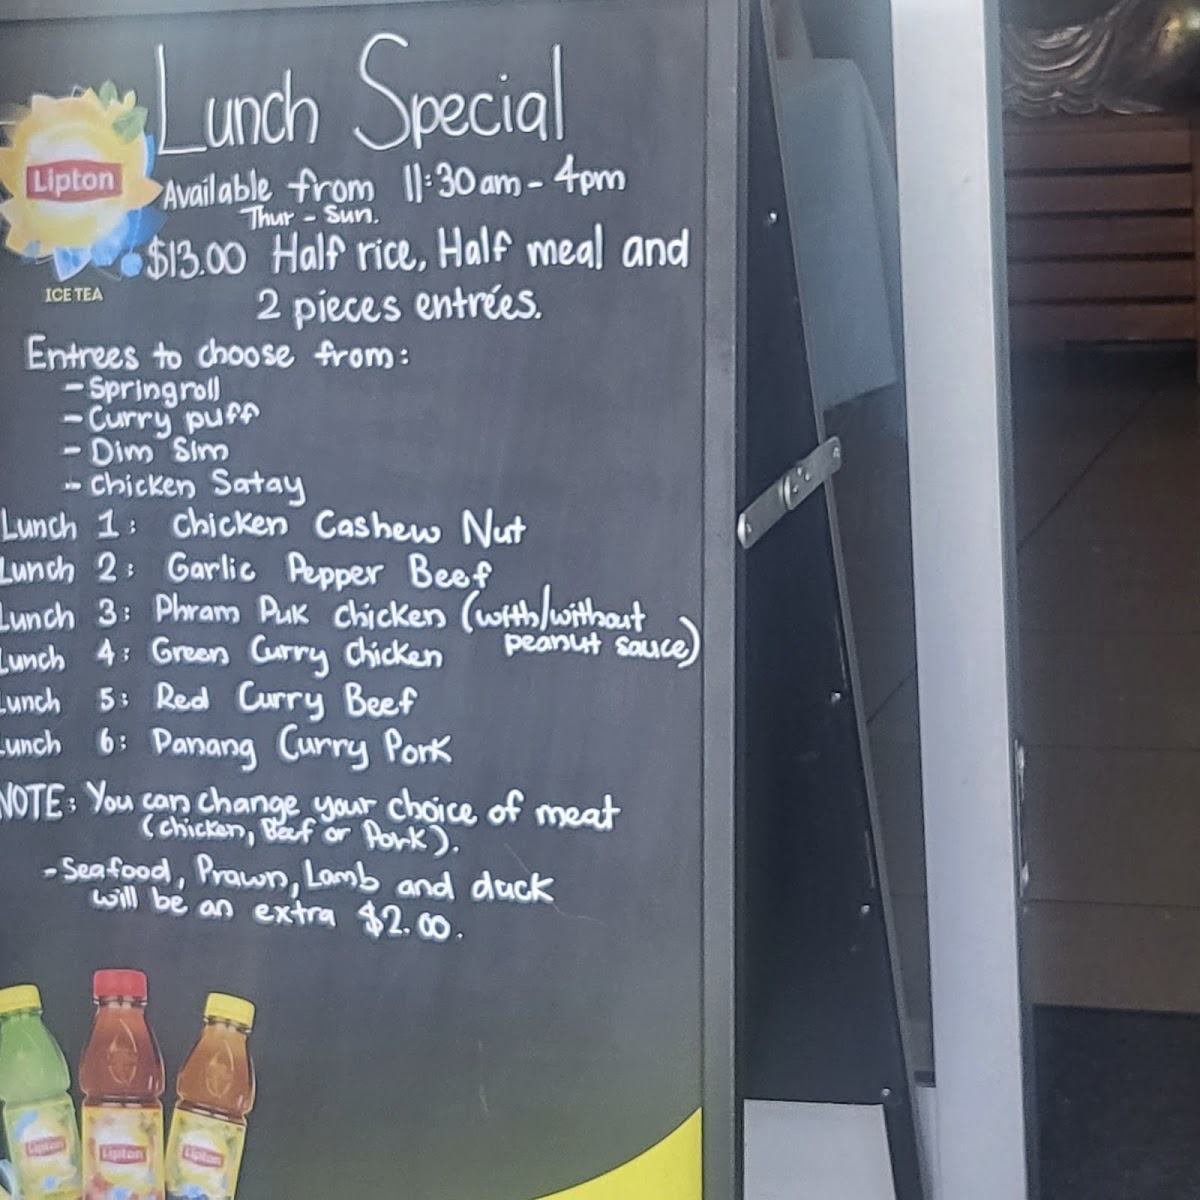 Lunch Special
Lipton
ICE TEA
Available from 11:30am - 4pm
Thur - Sun.
$13.00 Half rice, Half meal and
2 pieces entrées.
Entrees to choose from:
- Springroll
- Curry puff
- Dim Sim
- Chicken Satay
Lunch 1: Chicken Cashew Nut
Lunch 2: Garlic Pepper Beef
Lunch 3: Phram Puk Chicken (with/without
peanut sauce)
Lunch 4: Green Curry Chicken
Lunch 5: Red Curry Beef
Lunch 6: Panang Curry Pork
NOTE: You can change your choice of meat
(chicken, Beef or Pork).
- Seafood, Prawn, Lamb and duck
will be an extra $2.00.
Lipton
Lipton
Lipton